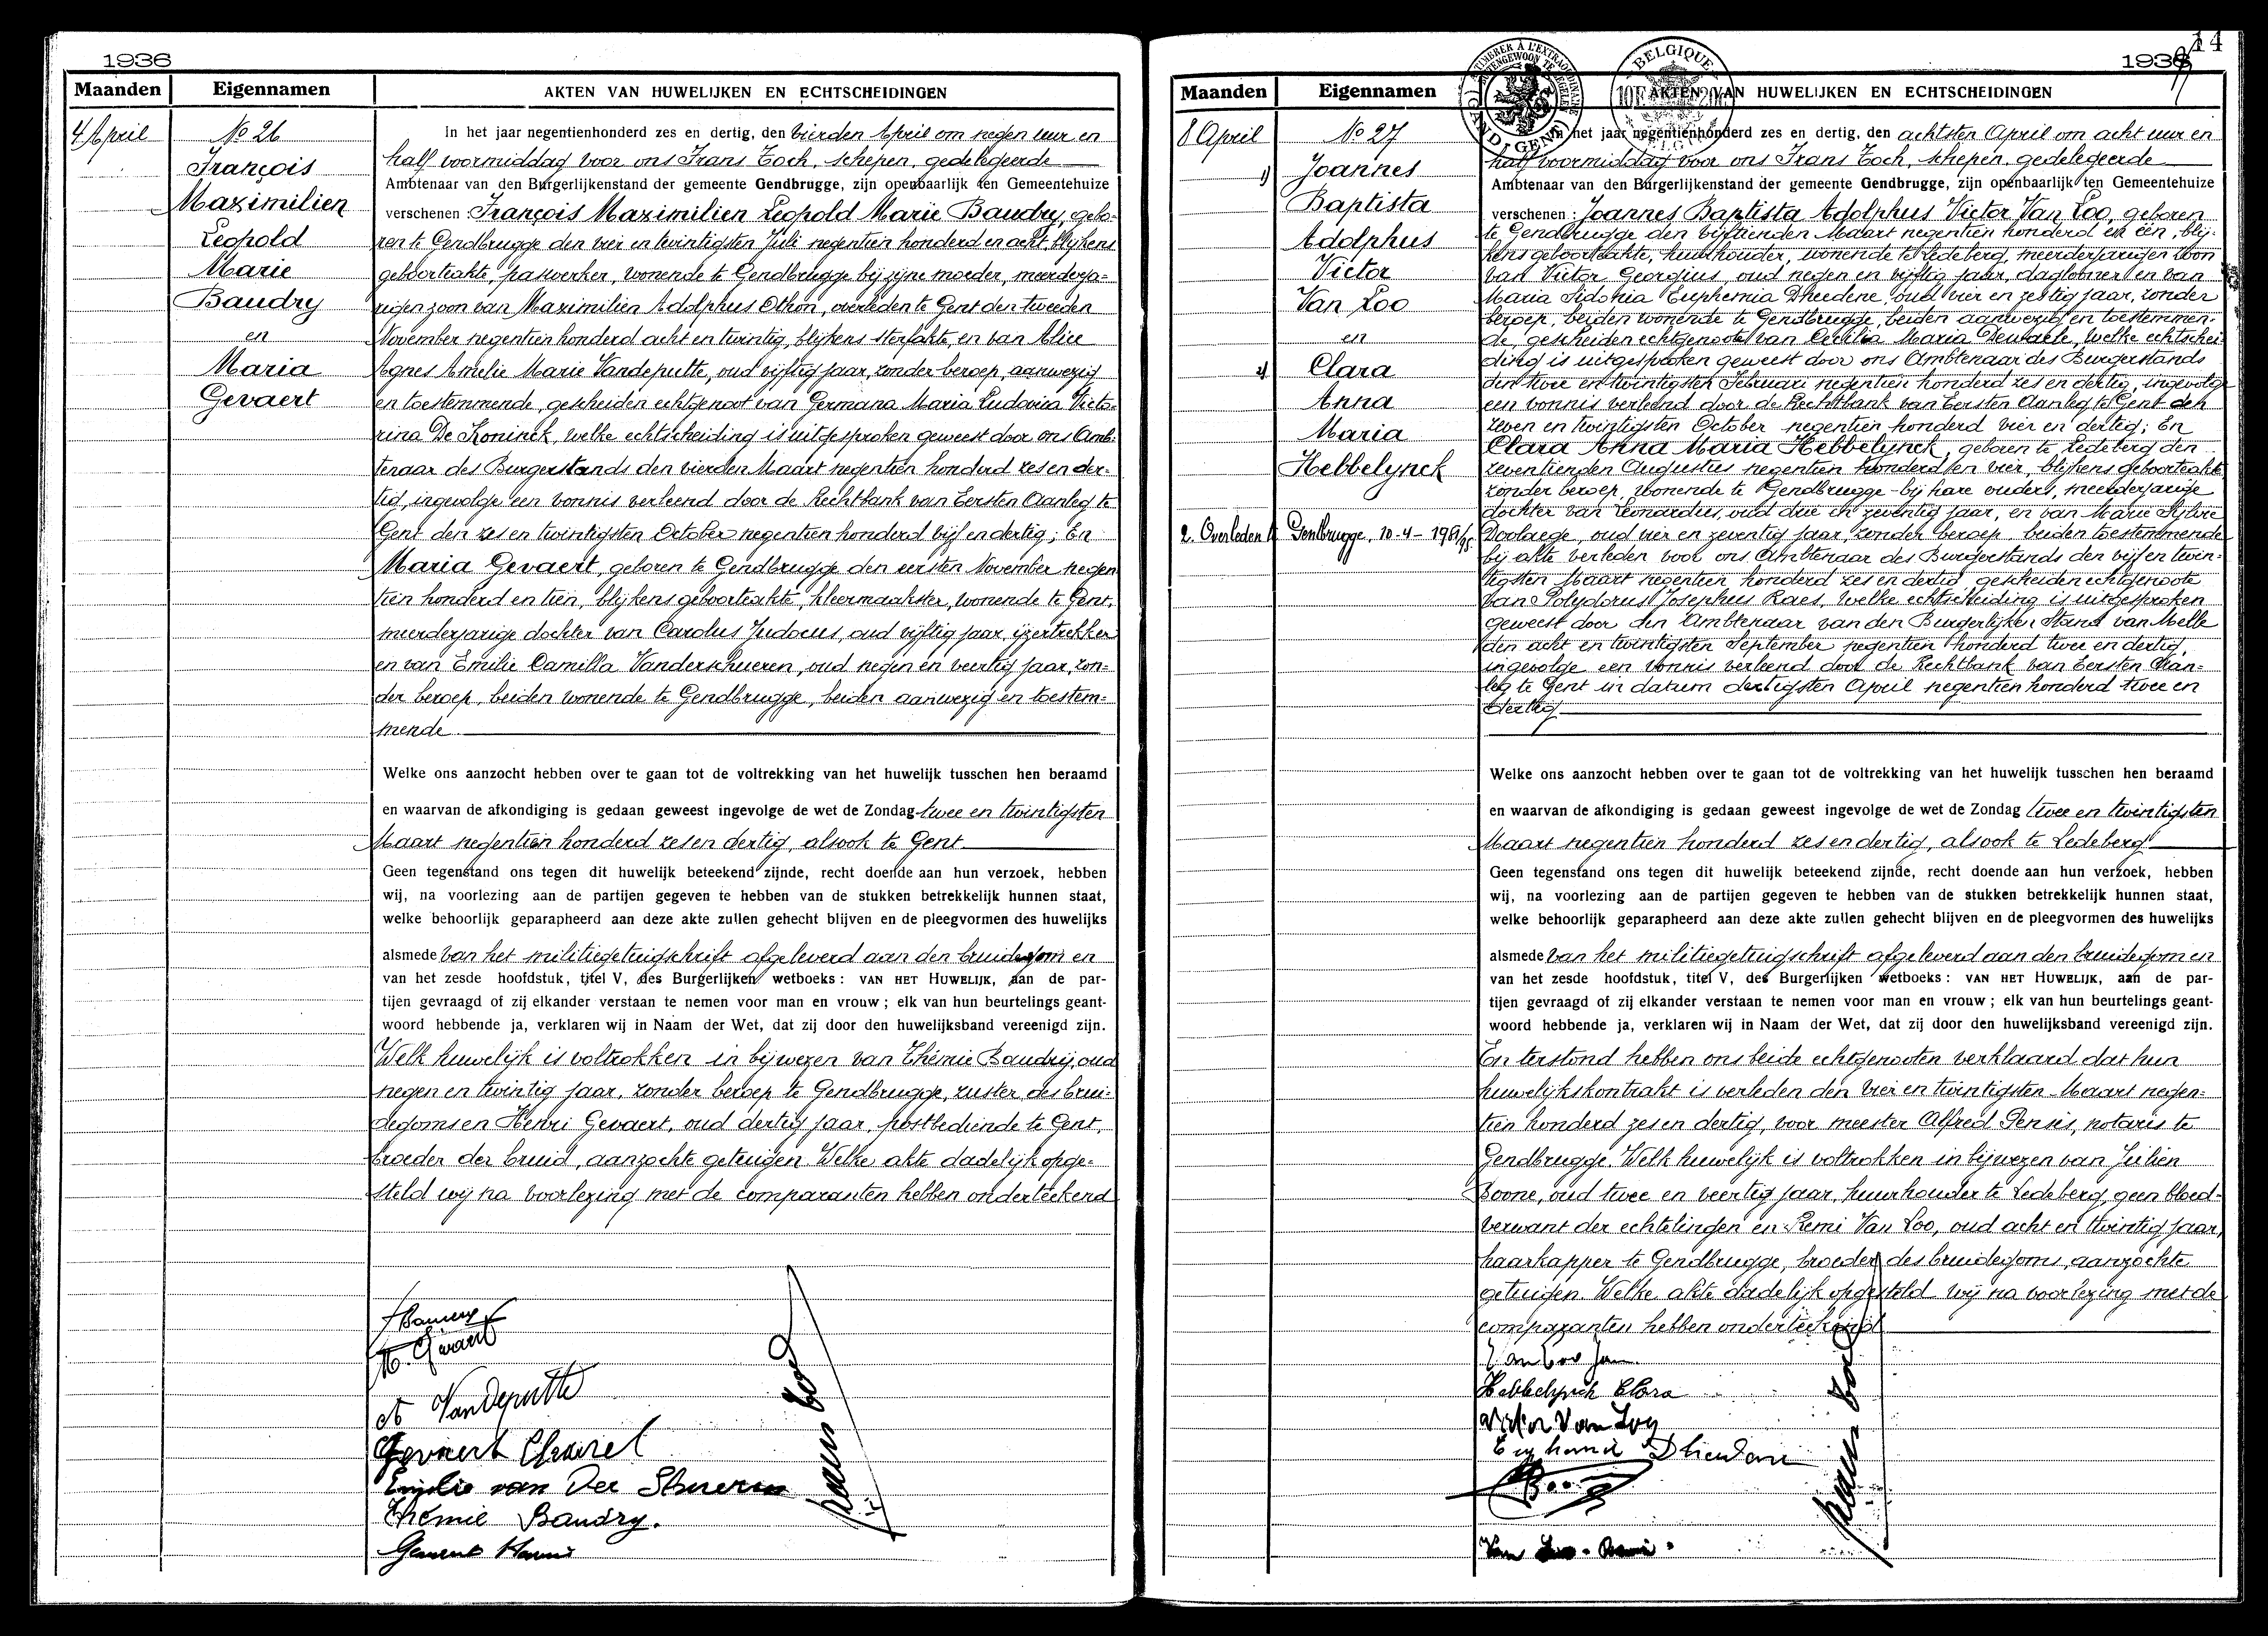 1936
Maanden Eigennamen AKTEN VAN HUWELIJKEN EN ECHTSCHEIDINGEN
4 April
No 26
François
Maximilien
Leopold
Marie
Baudry
en
Maria
Gevaert
In het jaar negentienhonderd zes en dertig, den vierden April om negen uur en
half voormiddag voor ons Frans Toch, schepen, gedelegeerde
Ambtenaar van den Burgerlijkenstand der gemeente Gendbrugge, zijn openbaarlijk ten Gemeentehuize
verschenen : François Maximilien Leopold Marie Baudry, gebo-
ren te Gendbrugge den vier en twintigsten Juli negentien honderd en acht, blijkens
geboorteakte, paswerker, wonende te Gendbrugge bij zijne moeder, meerderja-
rigen zoon van Maximilien Adolphus Othon, overleden te Gent den tweeden
November negentien honderd acht en twintig, blijkens sterfakte, en van Alice
Agnes Amelie Marie Vandeputte, oud vijftig jaar, zonder beroep, aanwezig
en toestemmende, gescheiden echtgenoot van Germana Maria Ludovica Victo-
rina De Koninck, welke echtscheiding is uitgesproken geweest door ons Amb-
tenaar des Burgerstands den vierden Maart negentien honderd zes en der-
tig, ingevolge een vonnis verleend door de Rechtbank van Eersten Aanleg te
Gent den zes en twintigsten October negentien honderd vijf en dertig; En
Maria Gevaert, geboren te Gendbrugge den eersten November negen
tien honderd en tien, blijkens geboorteakte, kleermaakster, wonende te Gent,
meerderjarige dochter van Carolus Judocus, oud vijftig jaar, ijzertrekker
en van Emilie Camilla Vanderschueren, oud negen en veertig jaar, zon-
der beroep, beiden wonende te Gendbrugge, beiden aanwezig en toestem-
mende
Welke ons aanzocht hebben over te gaan tot de voltrekking van het huwelijk tusschen hen beraamd
en waarvan de afkondiging is gedaan geweest ingevolge de wet de Zondag twee en twintigsten
Maart negentien honderd zes en dertig, alsook te Gent
Geen tegenstand ons tegen dit huwelijk beteekend zijnde, recht doende aan hun verzoek, hebben
wij, na voorlezing aan de partijen gegeven te hebben van de stukken betrekkelijk hunnen staat,
welke behoorlijk geparapheerd aan deze akte zullen gehecht blijven en de pleegvormen des huwelijks
alsmede van het militiegetuigschrift afgeleverd aan den bruidegom en
van het zesde hoofdstuk, titel V, des Burgerlijken wetboeks : VAN HET HUWELIJK, aan de par-
tijen gevraagd of zij elkander verstaan te nemen voor man en vrouw ; elk van hun beurtelings geant-
woord hebbende ja, verklaren wij in Naam der Wet, dat zij door den huwelijksband vereenigd zijn.
Welk huwelijk is voltrokken in bijwezen van Thémie Baudry, oud
negen en twintig jaar, zonder beroep te Gendbrugge, zuster des brui-
degoms en Henri Gevaert, oud dertig jaar, postbediende te Gent,
broeder der bruid, aanzochte getuigen. Welke akte dadelijk opge-
steld wij na voorlezing met de comparanten hebben onderteekend
M. Gevaert
A Vandeputte
Gevaert Charel
Emilie van Der Schueren
Thémie Baudry.
Gevaert Henri
14
1936
Maanden Eigennamen AKTEN VAN HUWELIJKEN EN ECHTSCHEIDINGEN
BELGIQUE
8 April
No 27
1) Joannes
Baptista
Adolphus
Victor
Van Loo
en
2) Clara
Anna
Maria
Hebbelynck
2. Overleden te Gentbrugge, 10-4-1981
In het jaar negentienhonderd zes en dertig, den achtsten April om acht uur en
half voormiddag voor ons Frans Toch, schepen, gedelegeerde
Ambtenaar van den Burgerlijkenstand der gemeente Gendbrugge, zijn openbaarlijk ten Gemeentehuize
verschenen : Joannes Baptista Adolphus Victor Van Loo, geboren
te Gendbrugge den vijftienden Maart negentien honderd en één, blij-
kens geboorteakte, huurhouder, wonende te Ledeberg, meerderjarigen zoon
van Victor Georgius, oud negen en vijftig jaar, daglooner en van
Maria Sidonia Euphemia Dheedene, oud vier en zestig jaar, zonder
beroep, beiden wonende te Gendbrugge, beiden aanwezig en toestemmen-
de, gescheiden echtgenoot van Cecilia Maria Deudaele, welke echtschei
ding is uitgesproken geweest door ons Ambtenaar des Burgerstands
den twee en twintigsten Februari negentien honderd zes en dertig, ingevolge
een vonnis verleend door de Rechtbank van Eersten Aanleg te Gent den
zeven en twintigsten October negentien honderd vier en dertig; En
Clara Anna Maria Hebbelynck, geboren te Ledeberg den
zeventienden Augustus negentien honderd en vier, blijkens geboorteakte
zonder beroep, wonende te Gendbrugge bij hare ouders, meerderjarige
dochter van Leonardus, oud drie en zeventig jaar, en van Marie Sylvie
Doolaege, oud vier en zeventig jaar, zonder beroep, beiden toestemmende
bij akte verleden voor ons Ambtenaar des Burgerstands den vijf en twin-
tigsten Maart negentien honderd zes en dertig, gescheiden echtgenoote
van Polydorus Josephus Raes, welke echtscheiding is uitgesproken
geweest door den Ambtenaar van den Burgerlijken Stand van Melle
den acht en twintigsten September negentien honderd twee en dertig,
ingevolge een vonnis verleend door de Rechtbank van Eersten Aan-
leg te Gent in datum dertigsten April negentien honderd twee en
dertig
Welke ons aanzocht hebben over te gaan tot de voltrekking van het huwelijk tusschen hen beraamd
en waarvan de afkondiging is gedaan geweest ingevolge de wet de Zondag twee en twintigsten
Maart negentien honderd zes en dertig, alsook te Ledeberg
Geen tegenstand ons tegen dit huwelijk beteekend zijnde, recht doende aan hun verzoek, hebben
wij, na voorlezing aan de partijen gegeven te hebben van de stukken betrekkelijk hunnen staat,
welke behoorlijk geparapheerd aan deze akte zullen gehecht blijven en de pleegvormen des huwelijks
alsmede van het militiegetuigschrift afgeleverd aan den bruidegom en
van het zesde hoofdstuk, titel V, des Burgerlijken wetboeks : VAN HET HUWELIJK, aan de par-
tijen gevraagd of zij elkander verstaan te nemen voor man en vrouw ; elk van hun beurtelings geant-
woord hebbende ja, verklaren wij in Naam der Wet, dat zij door den huwelijksband vereenigd zijn.
En terstond hebben ons beide echtgenooten verklaard dat hun
huwelijkskontrakt is verleden den vier en twintigsten Maart negen-
tien honderd zes en dertig, voor meester Alfred Pensis, notaris te
Gendbrugge. Welk huwelijk is voltrokken in bijwezen van Julien
Boone, oud twee en veertig jaar, huurhouder te Ledeberg, geen bloed-
verwant der echtelingen en Remi Van Loo, oud acht en twintig jaar,
haarkapper te Gendbrugge, broeder des bruidegoms, aanzochte
getuigen. Welke akte dadelijk opgesteld wij na voorlezing met de
comparanten hebben onderteekend
Van Loo Jan
Hebbelynck Clara
Victor Van Loo